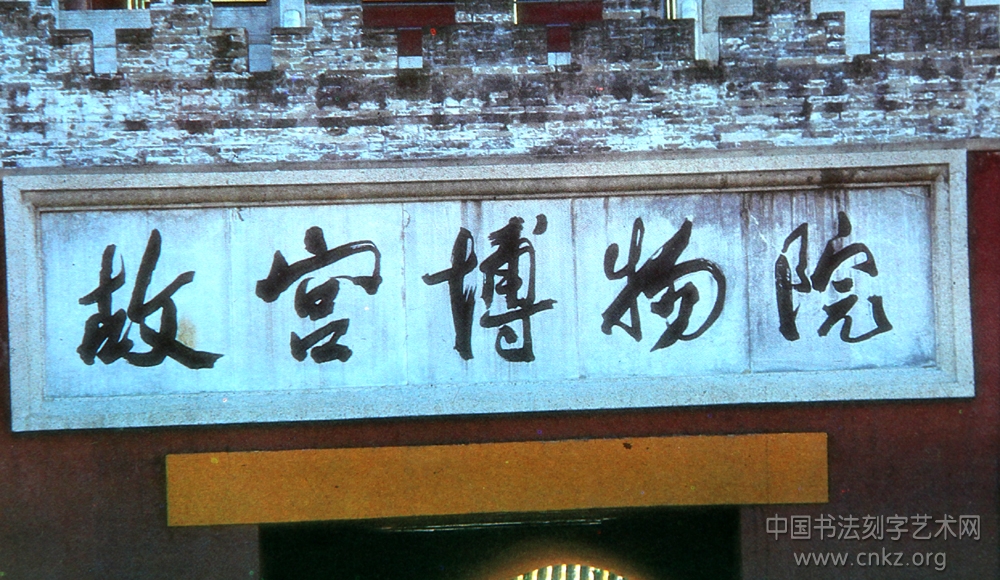 故宫博物院
中国书法刻字艺术网
www.cnkz.org